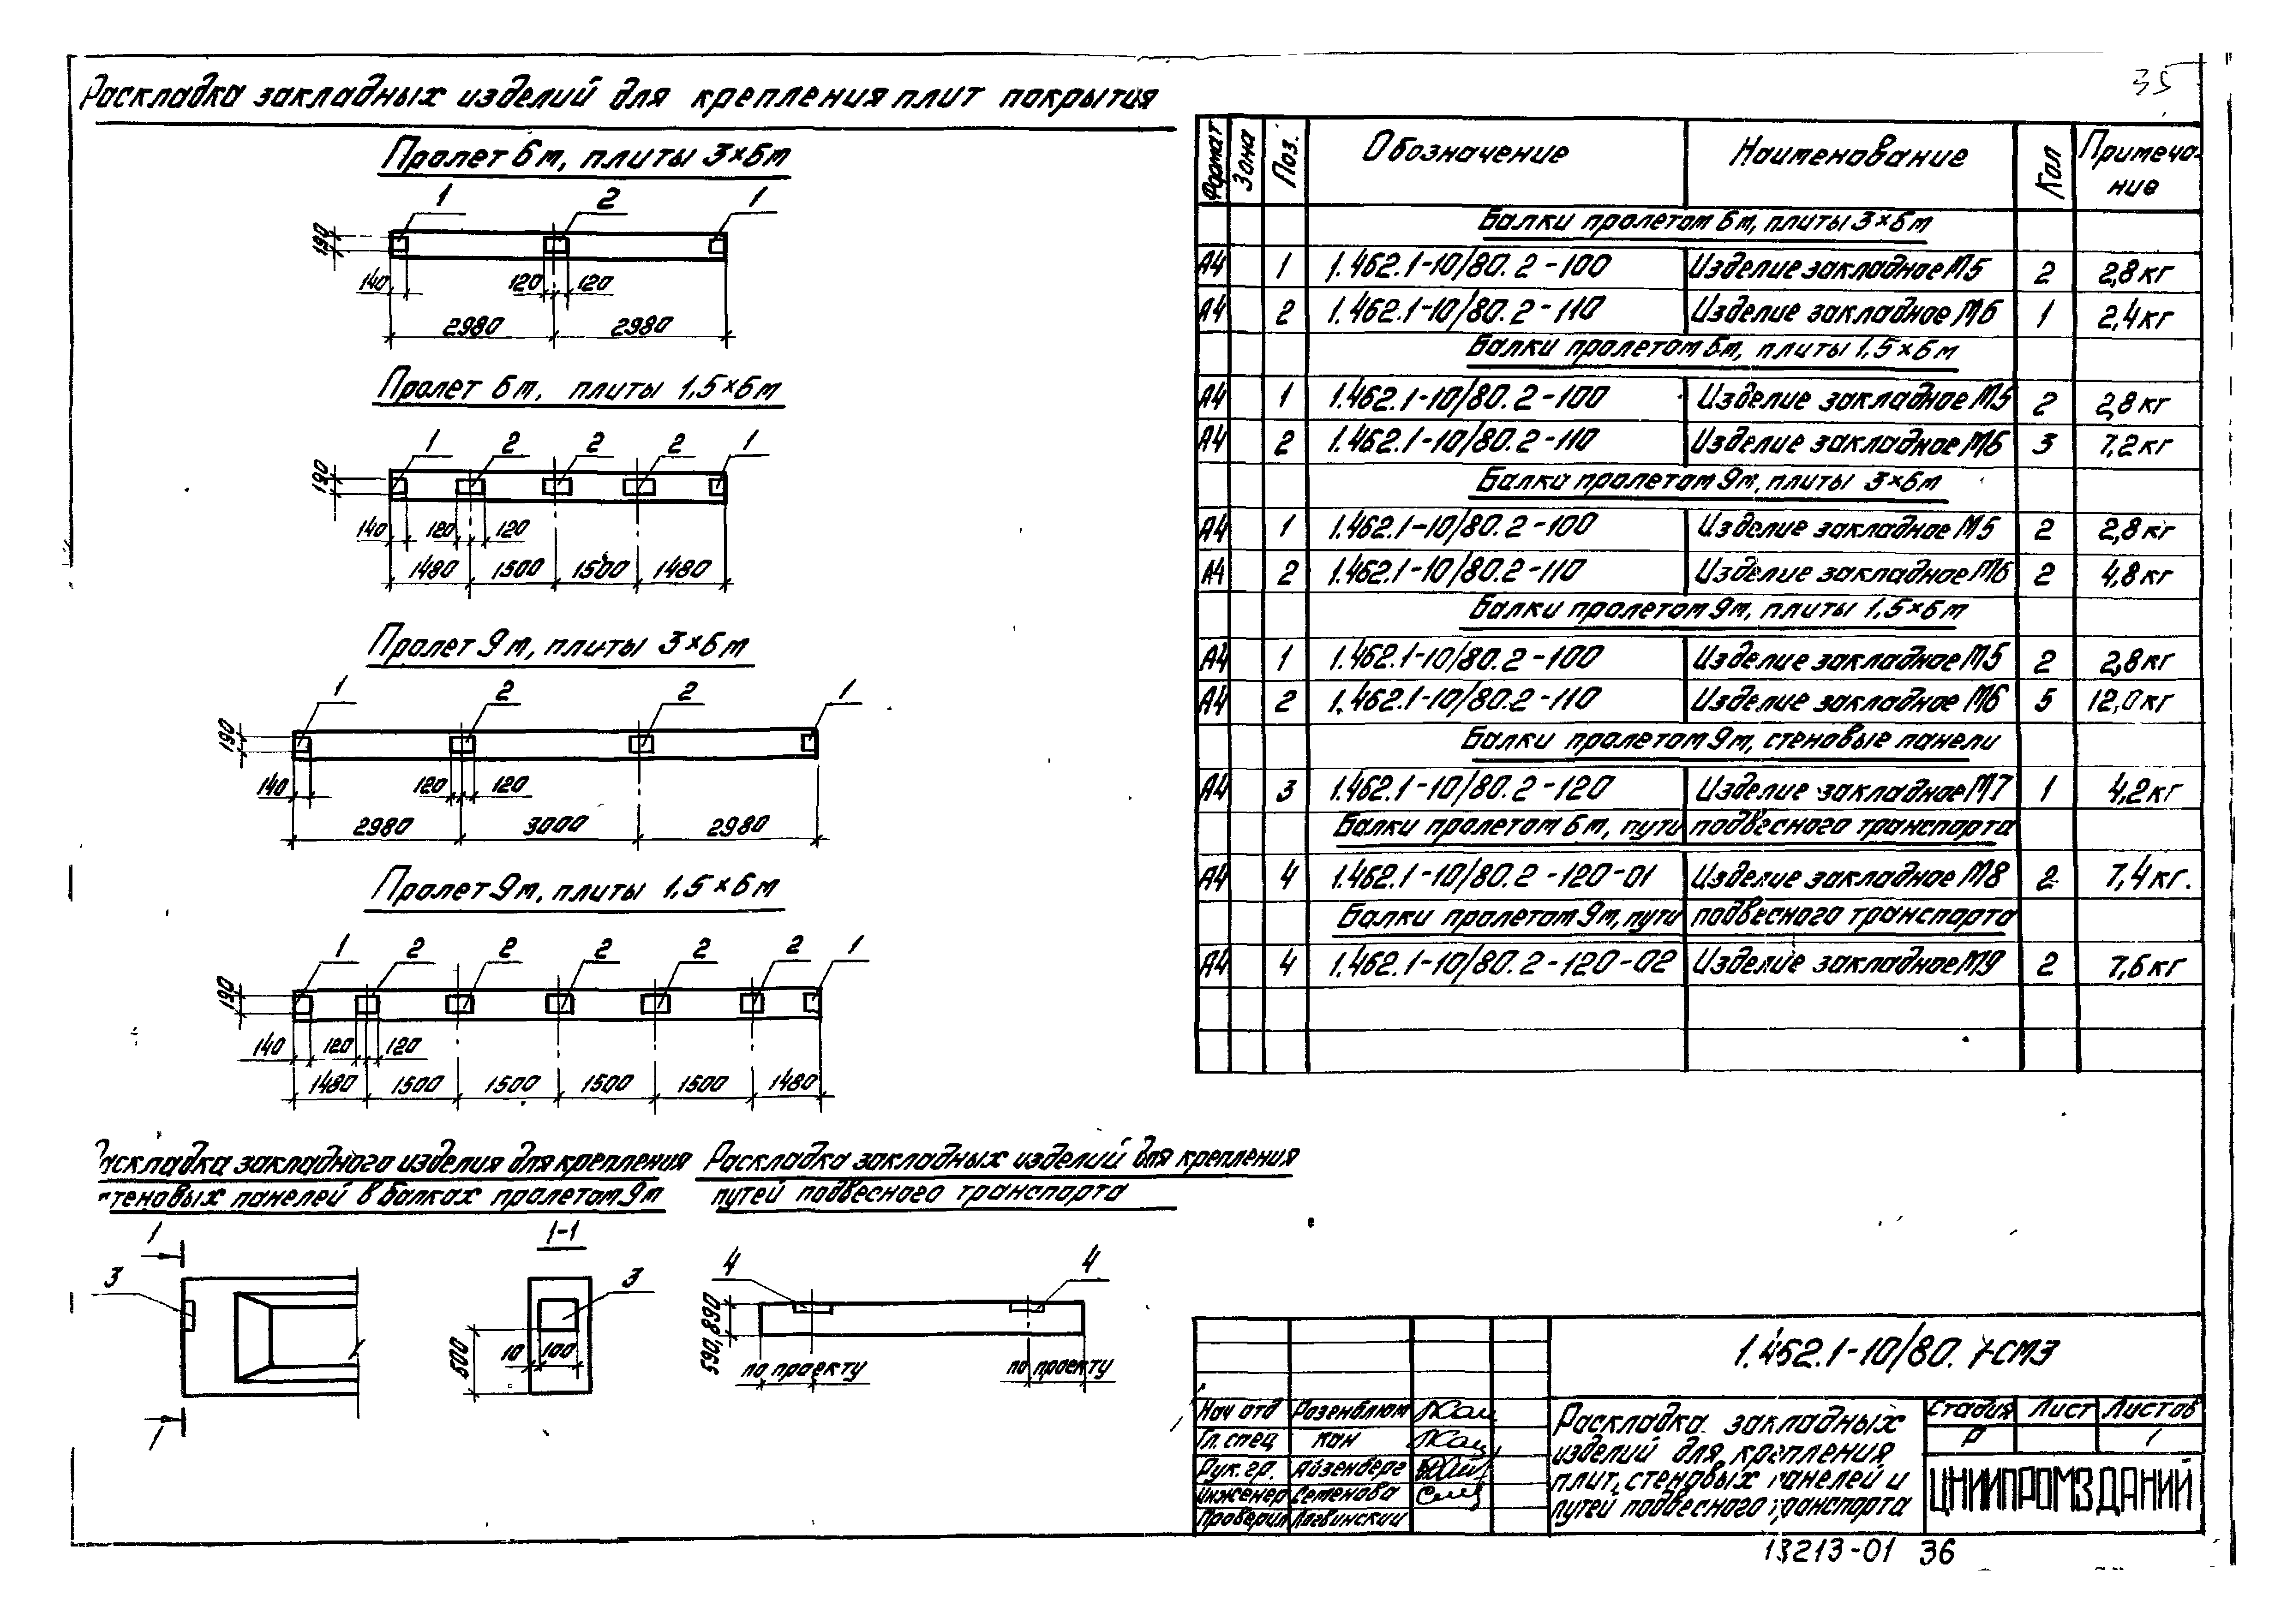 35
Раскладка закладных изделий для крепления плит покрытия
Пролет 6м, плиты 3×6м
1 2 1
190
140 120 120
2980 2980
Пролет 6м, плиты 1,5×6м
1 2 2 2 1
190
140 120 120
1480 1500 1500 1480
Пролет 9м, плиты 3×6м
1 2 2 1
190
140 120 120
2980 3000 2980
Пролет 9м, плиты 1,5×6м
1 2 2 2 2 2 1
190
140 120 120
1480 1500 1500 1500 1500 1480
Раскладка закладного изделия для крепления
стеновых панелей в балках пролетом 9м
1
3
1
1-1
3
600
10 100
Раскладка закладных изделий для крепления
путей подвесного транспорта
4 4
590, 890
по проекту по проекту
Формат Зона Поз. Обозначение Наименование Кол Примеча-
ние
Балки пролетом 6м, плиты 3×6м
А4 1 1.462.1-10/80.2-100 Изделие закладное М5 2 2,8кг
А4 2 1.462.1-10/80.2-110 Изделие закладное М6 1 2,4кг
Балки пролетом 6м, плиты 1,5×6м
А4 1 1.462.1-10/80.2-100 Изделие закладное М5 2 2,8кг
А4 2 1.462.1-10/80.2-110 Изделие закладное М6 3 7,2кг
Балки пролетом 9м, плиты 3×6м
А4 1 1.462.1-10/80.2-100 Изделие закладное М5 2 2,8кг
А4 2 1.462.1-10/80.2-110 Изделие закладное М6 2 4,8кг
Балки пролетом 9м, плиты 1,5×6м
А4 1 1.462.1-10/80.2-100 Изделие закладное М5 2 2,8кг
А4 2 1.462.1-10/80.2-110 Изделие закладное М6 5 12,0кг
Балки пролетом 9м, стеновые панели
А4 3 1.462.1-10/80.2-120 Изделие закладное М7 1 4,2кг
Балки пролетом 6м, пути подвесного транспорта
А4 4 1.462.1-10/80.2-120-01 Изделие закладное М8 2 7,4кг.
Балки пролетом 9м, пути подвесного транспорта
А4 4 1.462.1-10/80.2-120-02 Изделие закладное М9 2 7,6кг
1.462.1-10/80. 1-СМ3
Нач отд Розенблюм
Гл. спец Кан
Рук. гр. Айзенберг
Инженер Семенова
Проверил Логвинский
Раскладка закладных
изделий для крепления
плит, стеновых панелей и
путей подвесного транспорта
Стадия Лист Листов
Р 1
ЦНИИПРОМЗДАНИЙ
18213-01 36